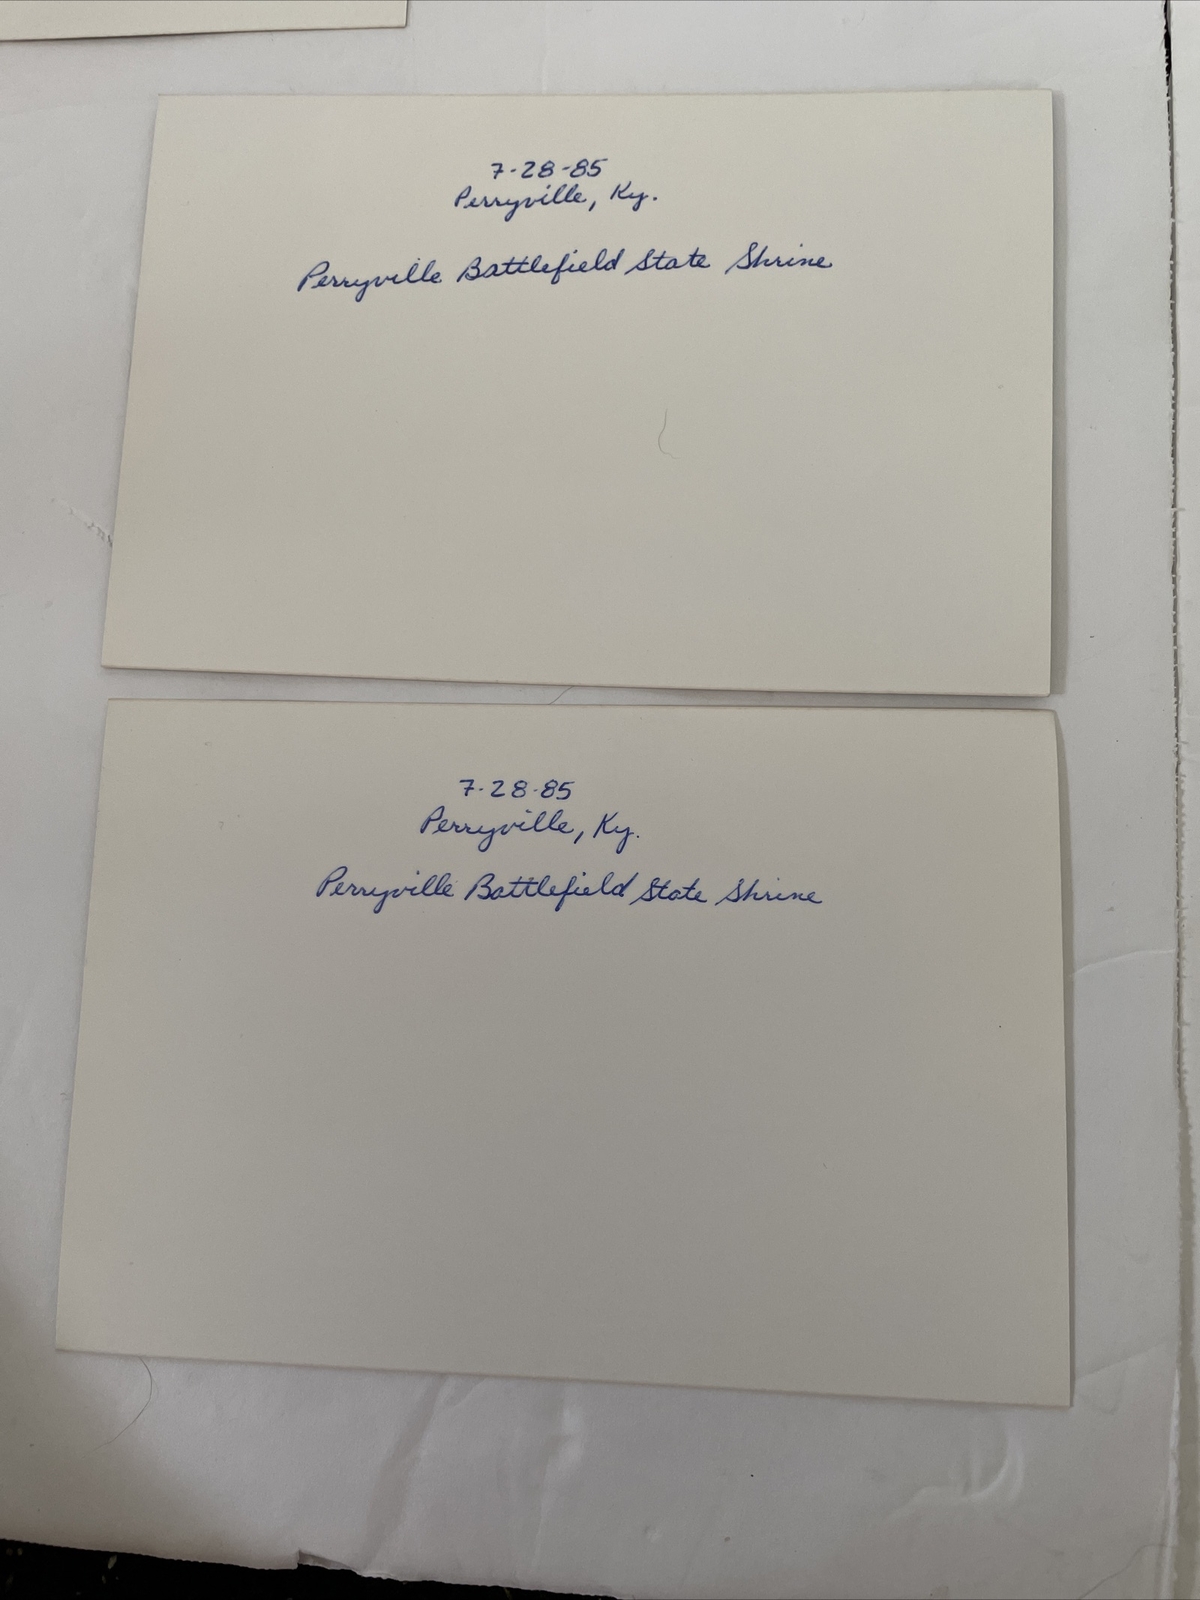 7-28-85
Perryville, Ky.
Perryville Battlefield State Shrine
7-28-85
Perryville, Ky.
Perryville Battlefield State Shrine